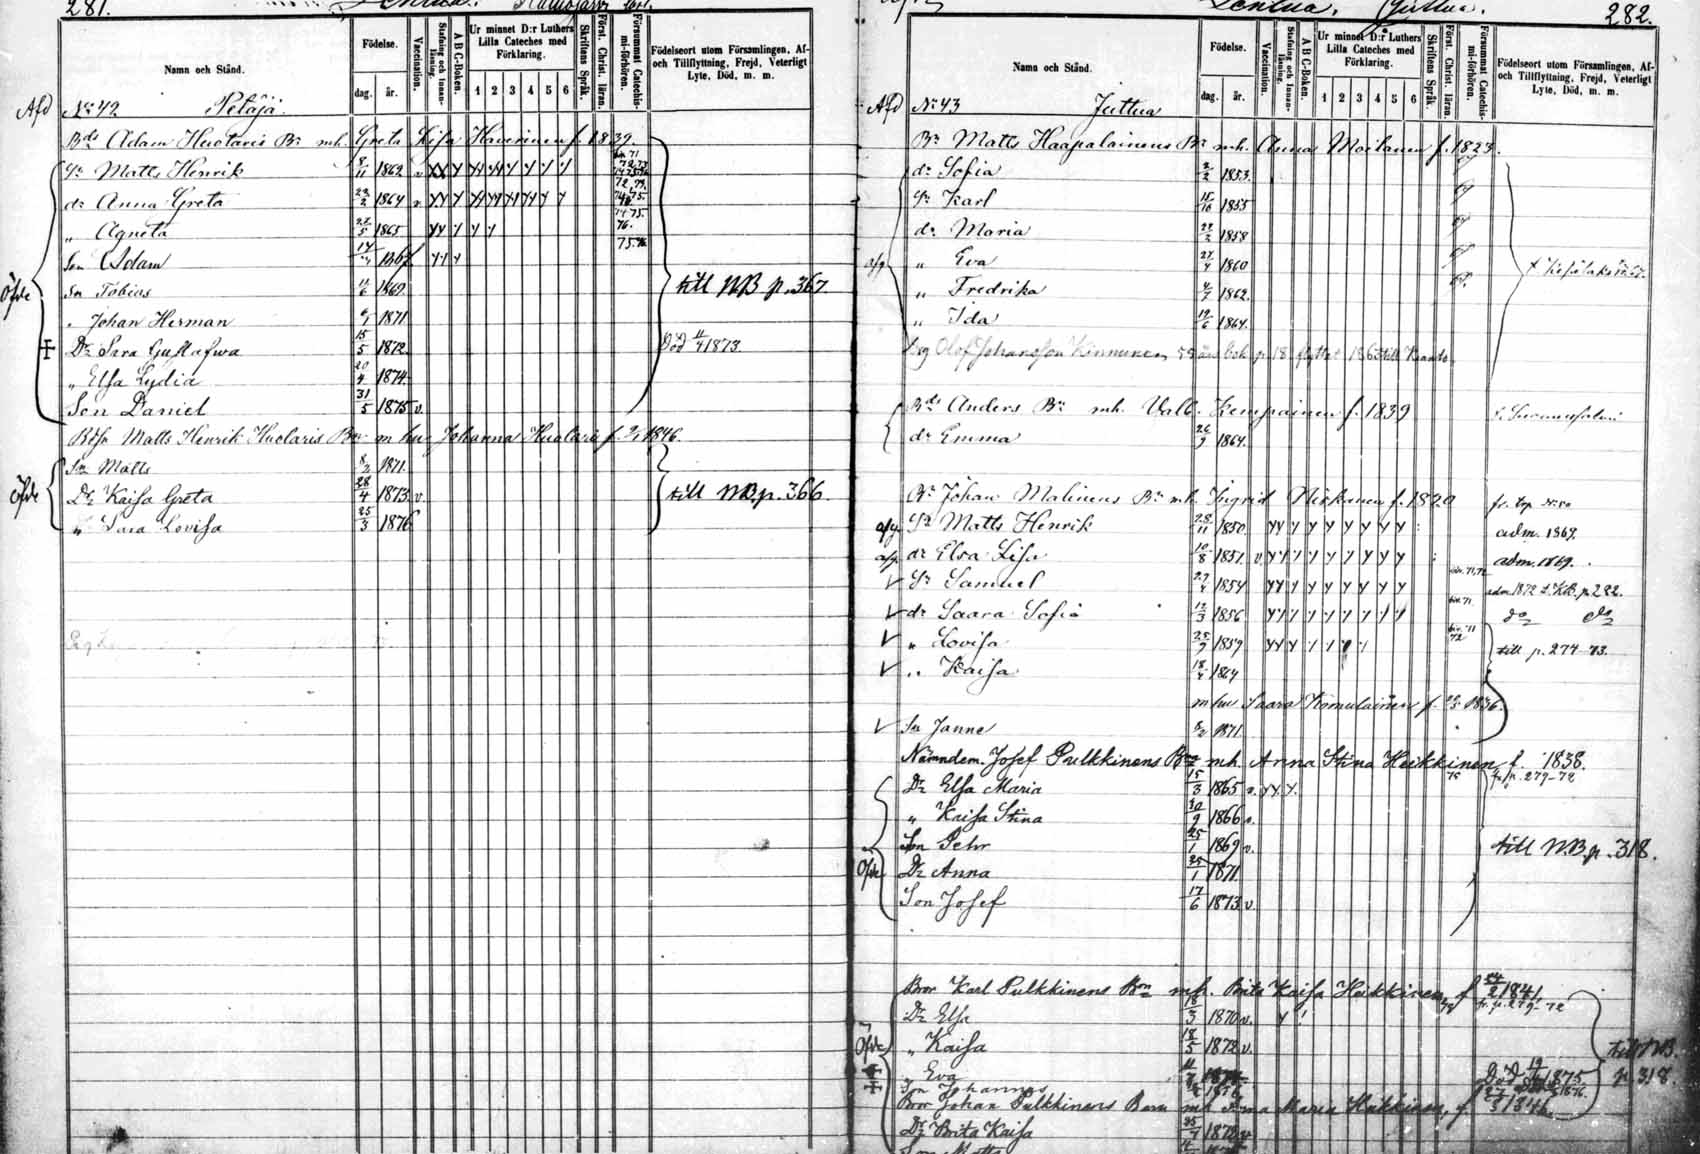 281.
Namn och Stånd.
Födelse.
dag. år.
Vaccination.
Stafning och Innanläsning.
A B C-Boken.
Ur minnet D:r Luthers Lilla Cateches med Förklaring.
1 2 3 4 5 6
Skriftens Språk.
Först. Christ. läran.
Försummat Catechismi-förhören.
Födelseort utom Församlingen, Af- och Tillflyttning, Frejd, Veterligt Lyte, Död, m. m.
Afd No 42 Petäjä.
Bde Adam Huotaris Bn mh. Greta Lisa Haverinen f. 1839.
Sn Matts Henrik 8/11 1862
dr Anna Greta 23/2 1864
" Agneta 22/5 1865
Son Adam 1867
Sn Tobias 11/6 1869
Öfde
till NB p. 367
" Johan Herman 1871
Dr Sara Gustafwa 15/5 1872 Död 1873
" Elsa Lydia 20/4 1874
Son Daniel 31/5 1875 v.
Matts Henrik Huotaris Bn m hu Johanna Huotari f. 1846
Sn Matts 8/2 1871
Öfde
Dr Kaisa Greta 28/4 1873 v. till NB p. 366.
" Sara Lovisa 25/3 1876
Lentua. Juttua. 282.
Namn och Stånd.
Födelse.
dag. år.
Vaccination.
Stafning och Innanläsning.
A B C-Boken.
Ur minnet D:r Luthers Lilla Cateches med Förklaring.
1 2 3 4 5 6
Skriftens Språk.
Först. Christ. läran.
Försummat Catechismi-förhören.
Födelseort utom Församlingen, Af- och Tillflyttning, Frejd, Veterligt Lyte, Död, m. m.
Afd No 43 Juttua
Bn Matts Haapalainens Bn mh. Anna Moilanen f. 1823.
dr Sofia 2/2 1853.
Sn Karl 1855
dr Maria 1858
" Eva 27/4 1860
" Fredrika 1862.
" Ida 19/6 1864.
Olof Johansson Kinnunen
Bde Anders Bn mh. Valb. Kempainen f. 1839
dr Emma 26/9 1864.
Bn Johan Malinens Bn mh. Ingrid f. 1820
Sn Matts Henrik 28/11 1850 adm. 1869.
dr Elsa Lisa 10/8 1851. adm. 1869.
Sn Samuel 1854 adm 1872 p. 282.
dr Saara Sofia 12/3 1856 do do
" Lovisa 25/9 1859 till p. 274-73.
" Kaisa 18/4 1864
m hu Saara Komulainen f. 1836.
Sn Janne 1871
Nämndem. Josef Pulkkinens Bn mh. Anna Stina Heikkinen f. 1838.
Dr Elsa Maria 15/3 1865 fr. p. 279-72
" Kaisa Stina 30/9 1866 v.
Son Pehr 25/1 1869 v. till NB p. 318.
Öfde
Dr Anna 25/1 1871
Son Josef 17/6 1873 v.
Bror Karl Pulkkinens Bn mh. Brita Kaisa Heikkinen f 1841.
Dr Elsa 18/3 1870 v. fr. p. 279-72
Öfde
" Kaisa 18/5 1872 v. till NB. p 318.
" Eva Död 1875
Son Johannes 1876.
Bror Johan Pulkkinens Barn mh Anna Maria Heikkinen, f. 1846
Dr Brita Kaisa 1872 v
Son Matts